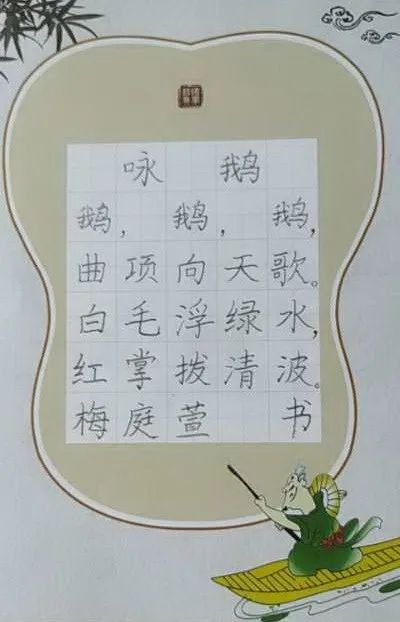 咏鹅
鹅,鹅,鹅,
曲项向天歌。
白毛浮绿水,
红掌拨清波。
梅庭萱 书